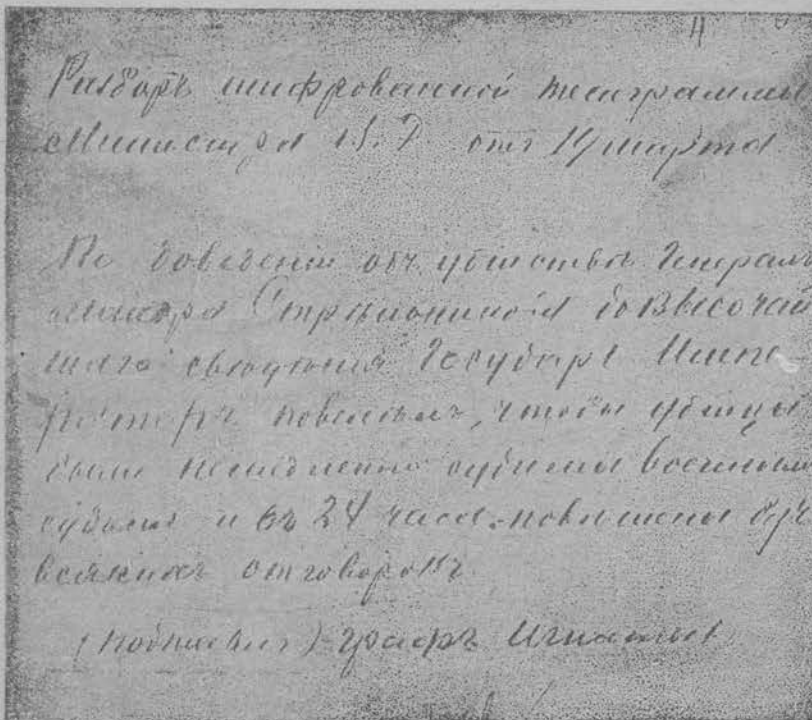 11
Разборъ шифрованной телеграммы
Министра В. Д отъ 19 марта
По доведеніи объ убійствѣ Генералъ
маіора Стрѣльникова до Высочай
шаго свѣдѣнія Государь Импе
раторъ повелѣлъ, чтобы убійцы
были немедленно судимы военнымъ
судомъ и въ 24 часа повѣшены безъ
всякихъ отговорокъ
(подписалъ) графъ Игнатьев